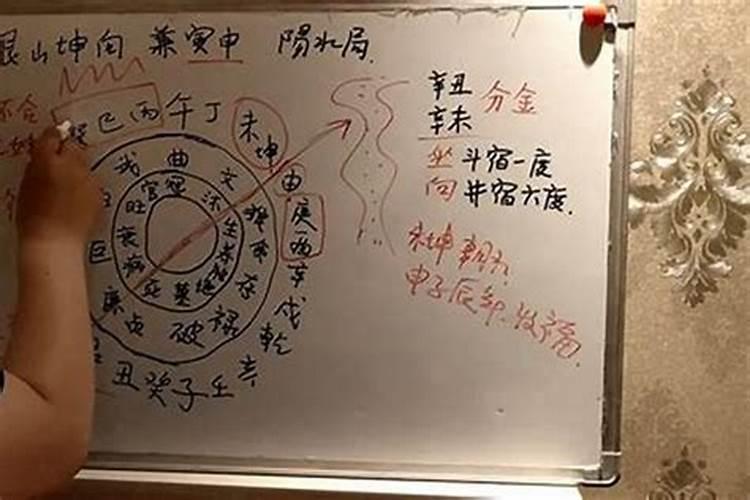 艮山坤向 兼寅申 陽水局
巽巳丙午丁
未坤
申
庚酉
辛
戌
乾
亥
壬
子
癸
丑
辛丑
辛未
分金
坐斗宿一度
向井宿六度
未坤朝水
申子辰年发福
戎 曲 文
存
禄
破
貞
廉
巨
官冠沐
旺
生
养
衰
病
死
墓